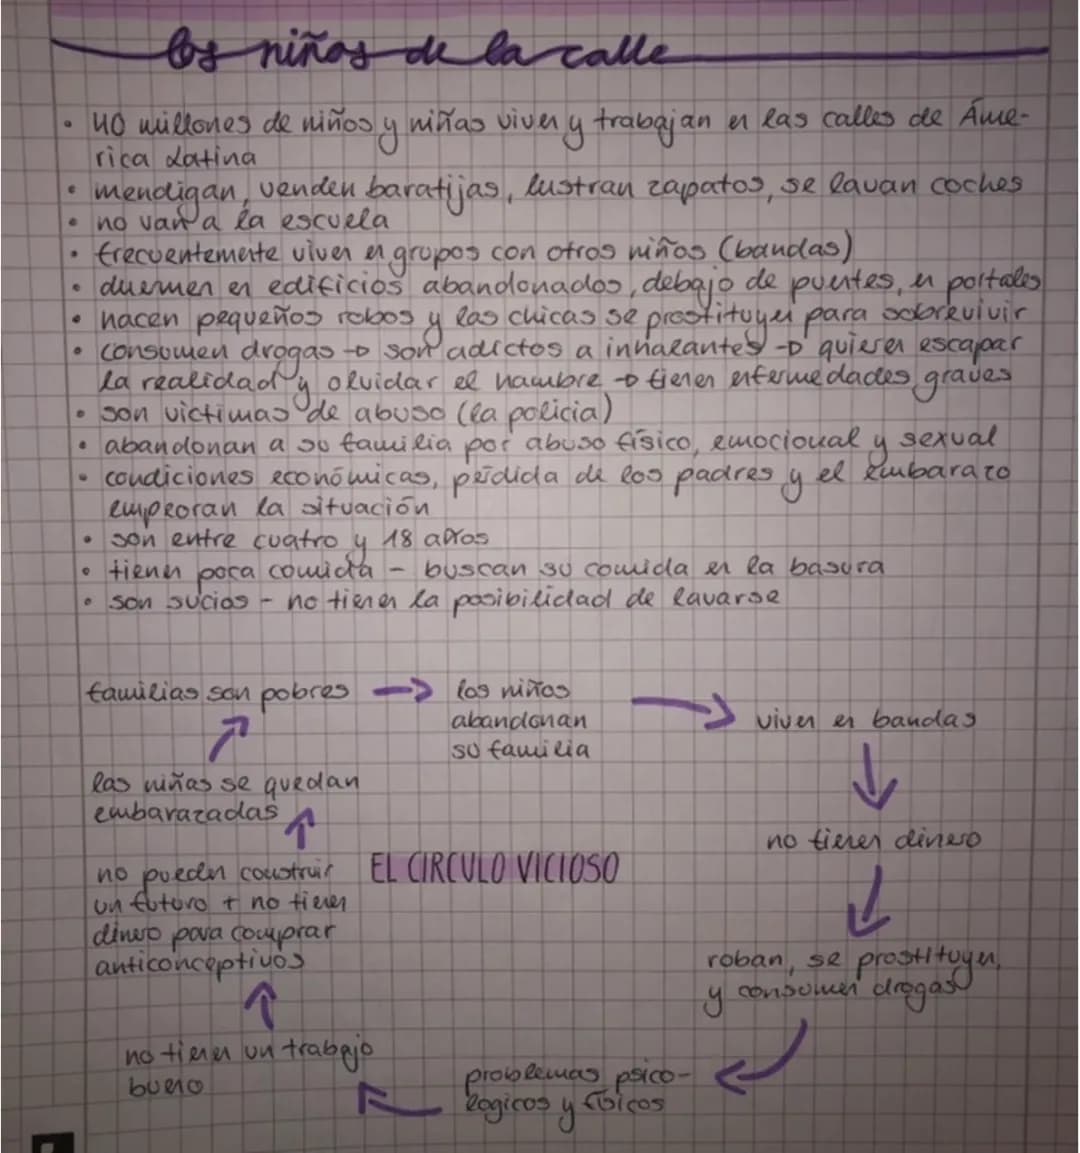 los niños de la calle
• 40 millones de niños y niñas viven y trabajan en las calles de Áme-
rica Latina
• mendigan, venden baratijas, lustran zapatos, se lavan coches
• no van a la escuela
• frecuentemente viven en grupos con otros niños (bandas)
• duermen en edificios abandonados, debajo de puentes, en portales
• hacen pequeños robos y las chicas se prostituyen para sobrevivir
• consumen drogas → son adictos a inhalantes → quieren escapar
la realidad y olvidar el hambre → tienen enfermedades graves
• son victimas de abuso (la policia)
• abandonan a su familia por abuso físico, emocional y sexual
• condiciones económicas, pérdida de los padres y el embarazo
empeoran la situación
• son entre cuatro y 18 años
• tienen poca comida - buscan su comida en la basura
• son sucios - no tienen la posibilidad de lavarse
familias son pobres → los niños
abandonan
su familia
→ viven en bandas
no tienen dinero
roban, se prostituyen,
y consumen drogas
problemas psico-
logicos y físicos
no tienen un trabajo
bueno
no pueden construir
un futuro + no tienen
dinero para comprar
anticonceptivos
las niñas se quedan
embarazadas
EL CIRCULO VICIOSO